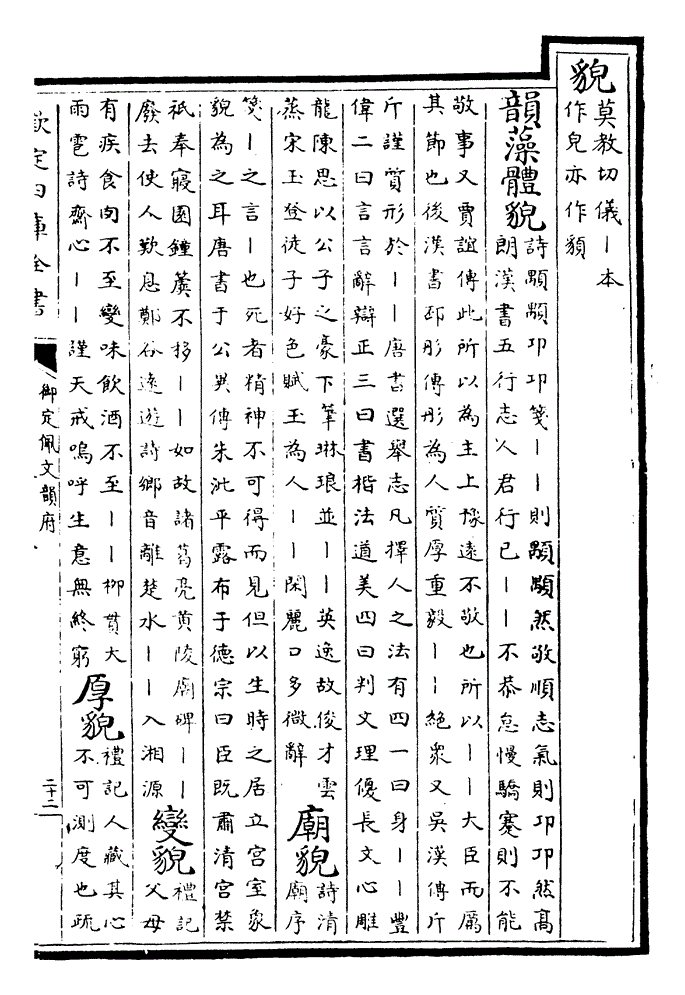 貌
莫教切儀丨本
作皃亦作䫉
韻藻體貌
詩顒顒卬卬箋丨丨則顒顒然敬順志氣則卬卬然高
朗漢書五行志人君行己丨丨不恭怠慢驕蹇則不能
敬事又賈誼傳此所以為主上豫遠不敬也所以丨丨大臣而厲
其節也後漢書邳彤傳彤為人質厚重毅丨丨絕衆又吳漢傳斤
斤謹質形於丨丨唐書選舉志凡擇人之法有四一曰身丨丨豐
偉二曰言言辭辯正三曰書楷法遒美四曰判文理優長文心雕
龍陳思以公子之豪下筆琳琅並丨丨英逸故俊才雲
蒸宋玉登徒子好色賦玉為人丨丨閑麗口多微辭
廟貌
詩清
廟序
箋丨之言丨也死者精神不可得而見但以生時之居立宫室象
貌為之耳唐書于公異傳朱泚平露布于德宗曰臣既肅清宫禁
祗奉寢園鐘簴不移丨丨如故諸葛亮黄陵廟碑丨丨
廢去使人歎息鄭谷逺遊詩鄉音離楚水丨丨入湘源
變貌
禮記
父母
有疾食肉不至變味飲酒不至丨丨柳貫大
雨雹詩齋心丨丨謹天戒嗚呼生意無終窮
厚貌
禮記人藏其心
不可測度也疏
欽定四庫全書
御定佩文韻府
二十二